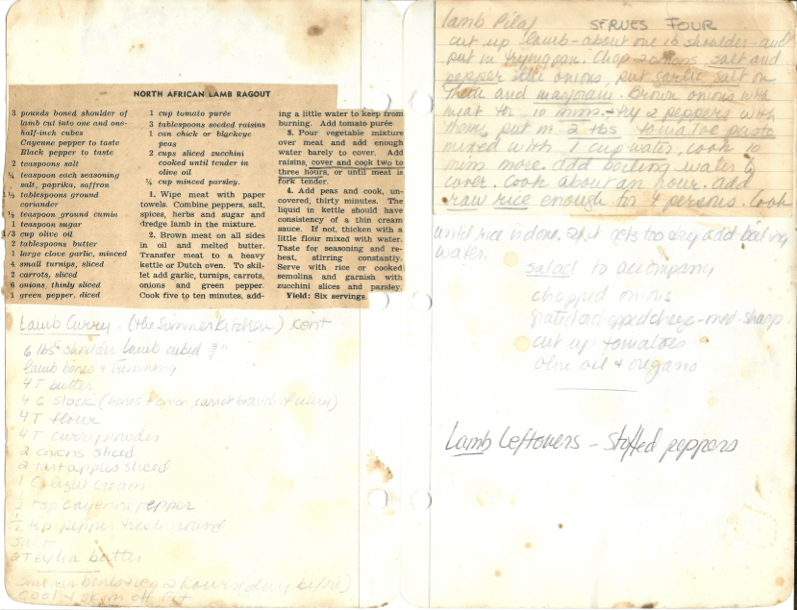 NORTH AFRICAN LAMB RAGOUT
3 pounds boned shoulder of
lamb cut into one and one-
half-inch cubes
Cayenne pepper to taste
Black pepper to taste
2 teaspoons salt
¼ teaspoon each seasoning
salt, paprika, saffron
1½ tablespoons ground
coriander
½ teaspoon ground cumin
1 teaspoon sugar
1/3 cup olive oil
2 tablespoons butter
1 large clove garlic, minced
4 small turnips, sliced
2 carrots, sliced
6 onions, thinly sliced
1 green pepper, diced
1 cup tomato purée
3 tablespoons seeded raisins
1 can chick or blackeye
peas
2 cups sliced zucchini
cooked until tender in
olive oil
¼ cup minced parsley.
1. Wipe meat with paper
towels. Combine peppers, salt,
spices, herbs and sugar and
dredge lamb in the mixture.
2. Brown meat on all sides
in oil and melted butter.
Transfer meat to a heavy
kettle or Dutch oven. To skil-
let add garlic, turnips, carrots,
onions and green pepper.
Cook five to ten minutes, add-
ing a little water to keep from
burning. Add tomato purée
3. Pour vegetable mixture
over meat and add enough
water barely to cover. Add
raisins, cover and cook two to
three hours, or until meat is
fork tender.
4. Add peas and cook, un-
covered, thirty minutes. The
liquid in kettle should have
consistency of a thin cream
sauce. If not, thicken with a
little flour mixed with water.
Taste for seasoning and re-
heat, stirring constantly.
Serve with rice or cooked
semolina and garnish with
zucchini slices and parsley.
Yield: Six servings.
Lamb Curry - (the Summer Kitchen) Kent
6 lbs shoulder Lamb cubed
lamb bones & trimming
4 T butter
4 C stock (bones & onion, carrot
4 T flour
4 T curry powder
2 onions sliced
2 tart apples sliced
1 C light cream
½ tsp cayenne pepper
½ tsp pepper fresh ground
Salt
2 T extra butter
2 hours (day before)
cool & skim off fat
Lamb Pilaf SERVES FOUR
cut up lamb - about one lb shoulder and
put in frying pan. Chop 2 onions, salt and
pepper the onions, put garlic salt on
them and marjoram. Brown onions with
meat for 10 mins - fry 2 peppers with
them, put in 2 tbs tomatoe paste
mixed with 1 cup water, cook 10
mins more. Add boiling water to
cover. Cook about an hour. Add
raw rice enough for 4 persons. Cook
until rice is done. If it gets too dry add boiling
water.
salad to accompany
chopped onions
grated or chopped cheese - med-sharp
cut up tomatoes
olive oil & oregano
Lamb Leftovers - Stuffed peppers